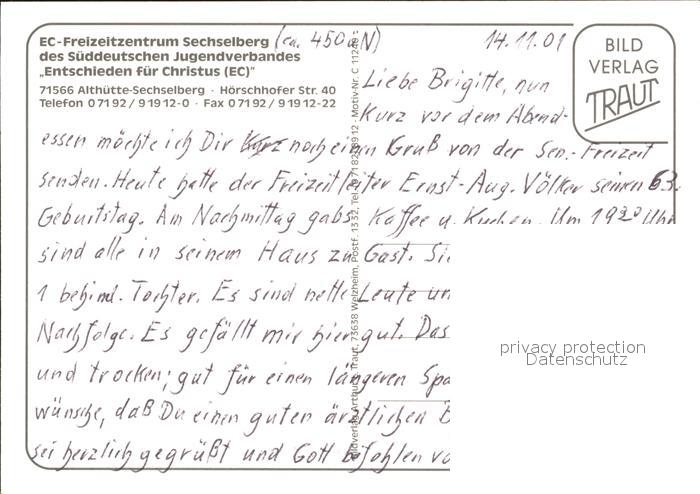 EC-Freizeitzentrum Sechselberg (ca. 450üN)
des Süddeutschen Jugendverbandes
„Entschieden für Christus (EC)"
71566 Althütte-Sechselberg · Hörschhofer Str. 40
Telefon 07192/91912-0 · Fax 07192/91912-22
14.11.01
BILD
VERLAG
TRAUT
Liebe Brigitte, nun
kurz vor dem Abend-
essen möchte ich Dir noch einen Gruß von der Sen.-Freizeit
senden. Heute hatte der Freizeitleiter Ernst-Aug. Völker seinen 63.
Geburtstag. Am Nachmittag gabs Kaffee u. Kuchen. Um 19³⁰ Uhr
sind alle in seinem Haus zu Gast. Si
1 behind. Tochter. Es sind nette Leute un
Nachfolge. Es gefällt mir hier gut. Das
und trocken; gut für einen längeren Spa
wünsche, daß Du einen guten ärztlichen B
sei herzlich gegrüßt und Gott befohlen vo
Bildverlag Arthur Traut, 73638 Welzheim, Postf. 1332, Tel. 07182/8912 · Motiv-Nr. C 11240
privacy protection
Datenschutz